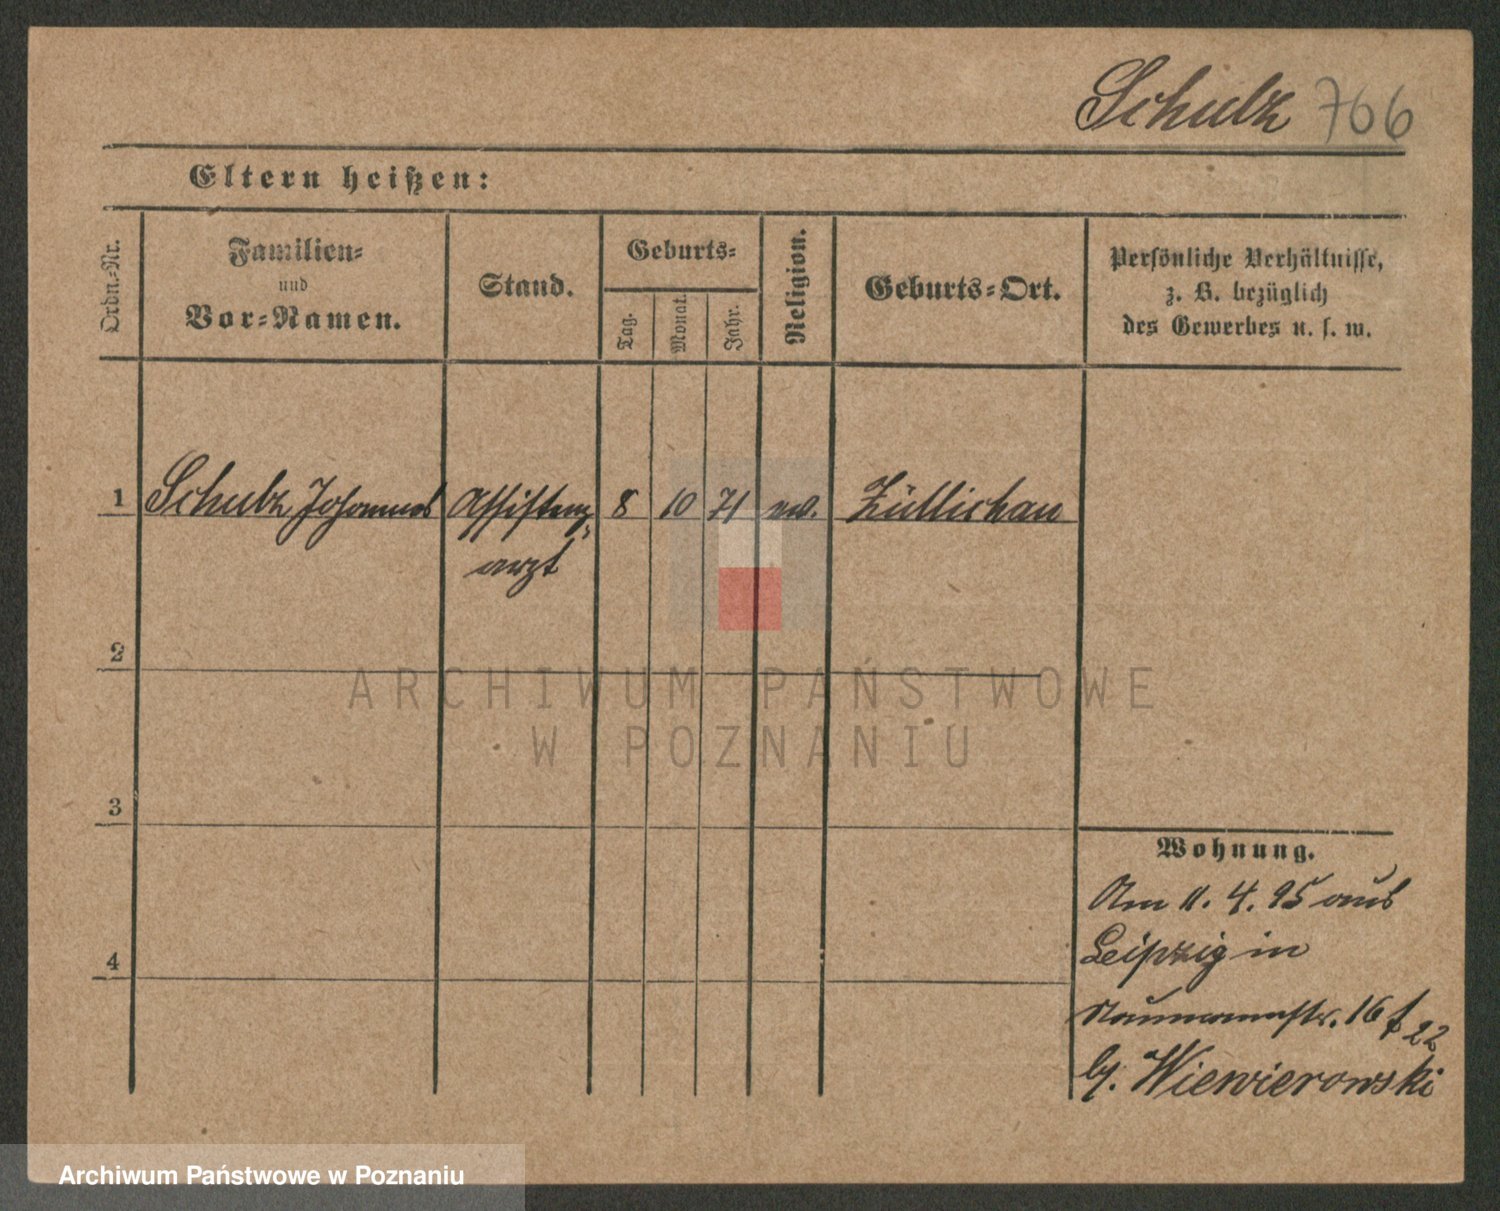 Schulz 766
Eltern heißen:
Ordn.-Nr.
Familien-
und
Vor-Namen.
Stand.
Geburts-
Tag.
Monat.
Jahr.
Religion.
Geburts-Ort.
Persönliche Verhältnisse,
z. B. bezüglich
des Gewerbes u. s. w.
1 Schulz Johannes Assistenz- 8 10 71 ev. Züllichau
arzt
2
ARCHIWUM PAŃSTWOWE
W POZNANIU
3
4
Wohnung.
Am 11. 4. 95 aus
Leipzig in
Naumannstr. 16 f 22
bj. Wiewierowski
Archiwum Państwowe w Poznaniu